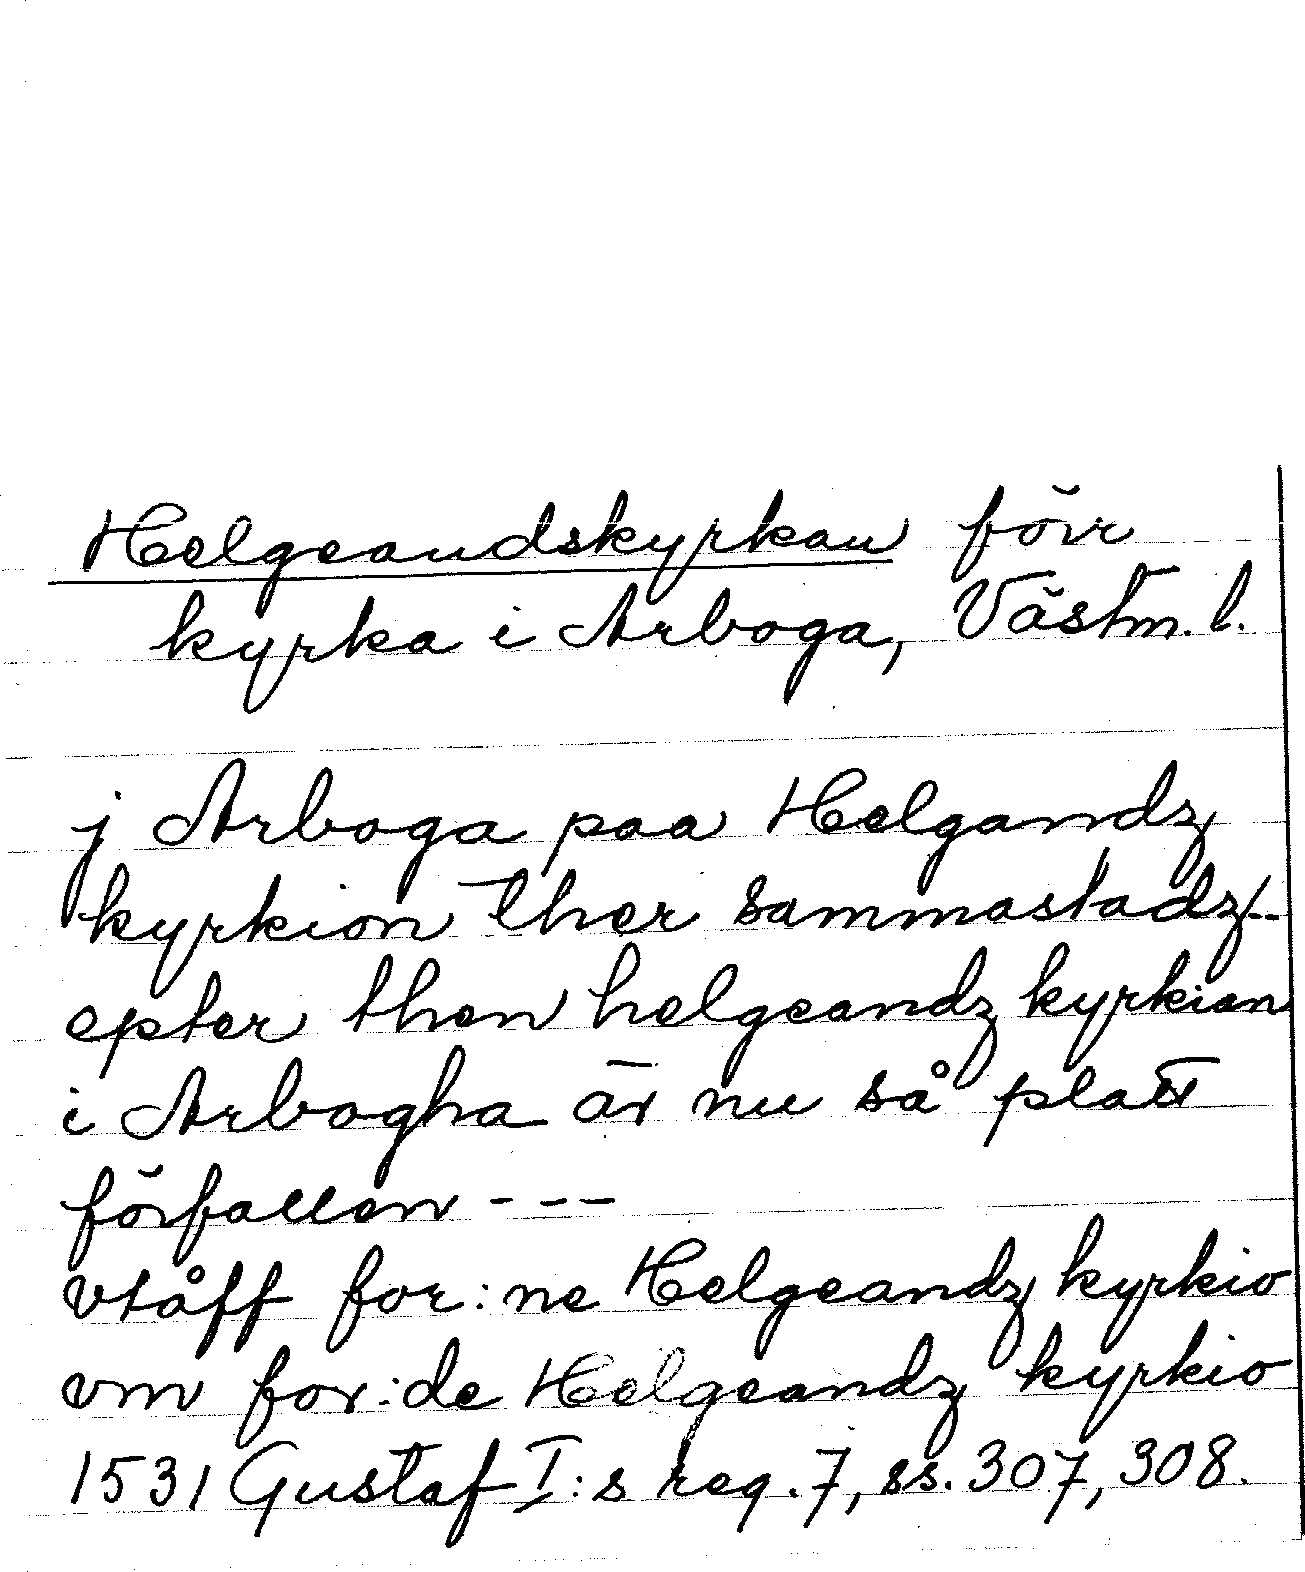 Helgeandskyrkan förr
kyrka i Arboga, Västm. l.
j Arboga paa Helgandz
kyrkion ther sammastadz --
epter then helgeandz kyrkian
i Arbogha är nu så platt
förfallen ---
vtåff for:ne Helgeandz kyrkio
vm for:de Helgeandz kyrkio
1531 Gustaf I:s reg. 7, ss. 307, 308.